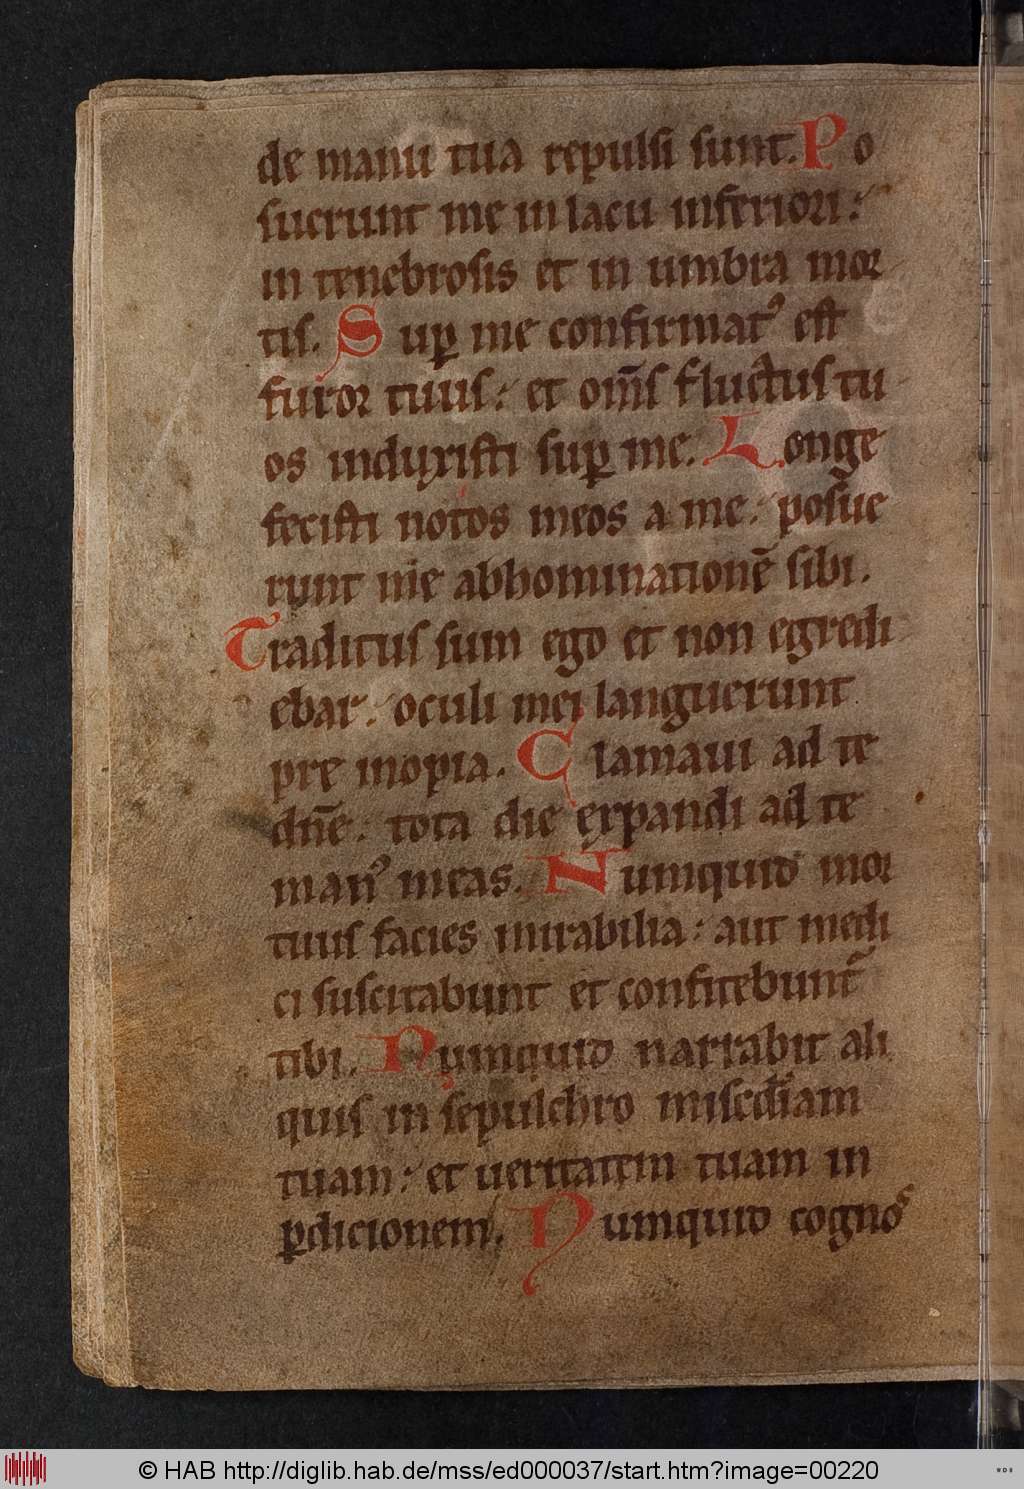 de manu tua repulsi sunt. Po
suerunt me in lacu inferiori:
in tenebrosis et in umbra mor
tis. Sup̱ me confirmat᷒ est
furor tuus: et om̄s fluctus tu
os induxisti sup̱ me. Longe
fecisti notos meos a me: posue
runt me abhominationē sibi.
Traditus sum ego et non egredi
ebar: oculi mei languerunt
prę inopia. Clamaui ad te
dn̄e: tota die expandi ad te
man᷒ meas. Numquid mor
tuis facies mirabilia: aut medi
ci suscitabunt et confitebunt᷒
tibi. Numquid narrabit ali
quis in sepulchro misc̄diam
tuam: et ueritatem tuam in
ꝑdicionem. Numquid cognos
© HAB http://diglib.hab.de/mss/ed000037/start.htm?image=00220